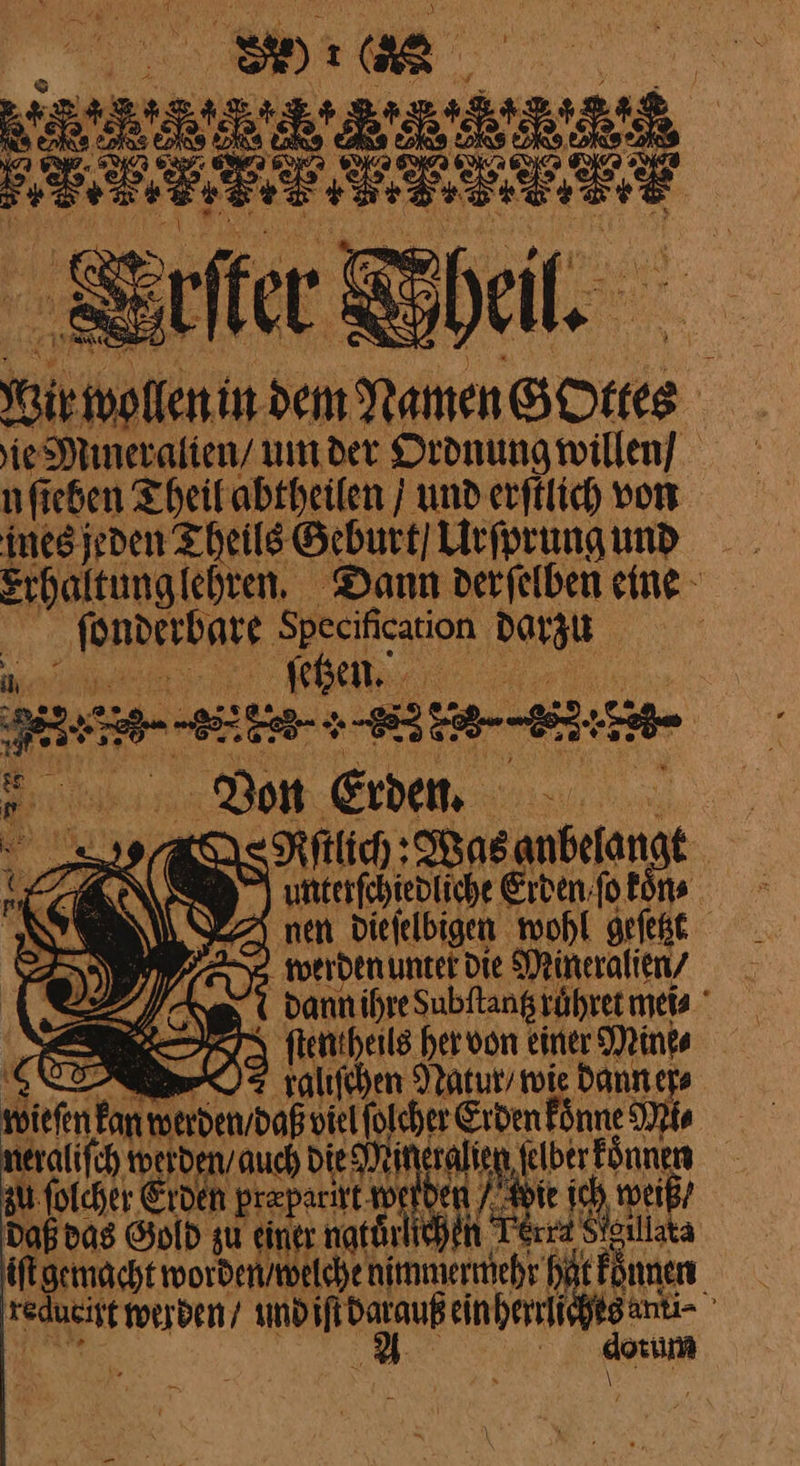 ) 1 (
Erſter Theil.
Wir wollen in dem Namen GOttes
die Mineralien/ um der Ordnung willen/
n ſieben Theil abtheilen / und erſtlich von
eines jeden Theils Geburt/ Urſprung und
Erhaltung lehren. Dann derſelben eine
ſonderbare Specification darzu
ſetzen.
Von Erden.
ERſtlich: Was anbelangt
unterſchiedliche Erden/ ſo koͤn⸗
nen dieſelbigen wohl geſetzt
werden unter die Mineralien/
dann ihre Subſtantz ruͤhret mei⸗
ſtentheils her von einer Mine⸗
raliſchen Natur/ wie dann er⸗
wieſen kan werden/ daß viel ſolcher Erden koͤnne Mi⸗
neraliſch werden/ auch die Mineralien ſelber koͤnnen
zu ſolcher Erden præparirt werden / wie ich weiß/
daß das Gold zu einer natuͤrlichen Terra Sigillata
iſt gemacht worden/ welche nimmermehr hat koͤnnen
reducirt werden / und iſt darauß ein herrliches anti-
A dotum